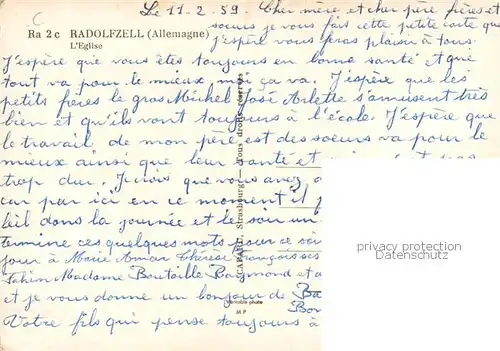 Le 11-2-59. Cher mère et cher père frères et
soeurs je vous fait cette petite carte que
j'espère vous feras plaisir à tous.
Ra 2 c RADOLFZELL (Allemagne)
L'Eglise
J'espère que vous êtes toujours en bonne santé et que
tout va pour le mieux, moi ça va. J'espère que les
petits frères le gros Michel José Arlette s'amusent très
bien et qu'ils vont toujours à l'école. J'espère que
le travail, de mon père est des soeurs va pour le
mieux ainsi que leur santé et pas
trop dur. Je crois que vous avez
car par ici en ce moment il
leil dans la journée et le soir un
termine ces quelques mots pour ce soir
jour à Marie Thérèse François ses
Madame Bouteille Raymond et
et je vous donne un bonjour de Ba
Bon
Votre fils qui pense toujours à
CAP-ART, Strasbourg — Tous droits réservés
Véritable photo
M P
privacy protection
Datenschutz